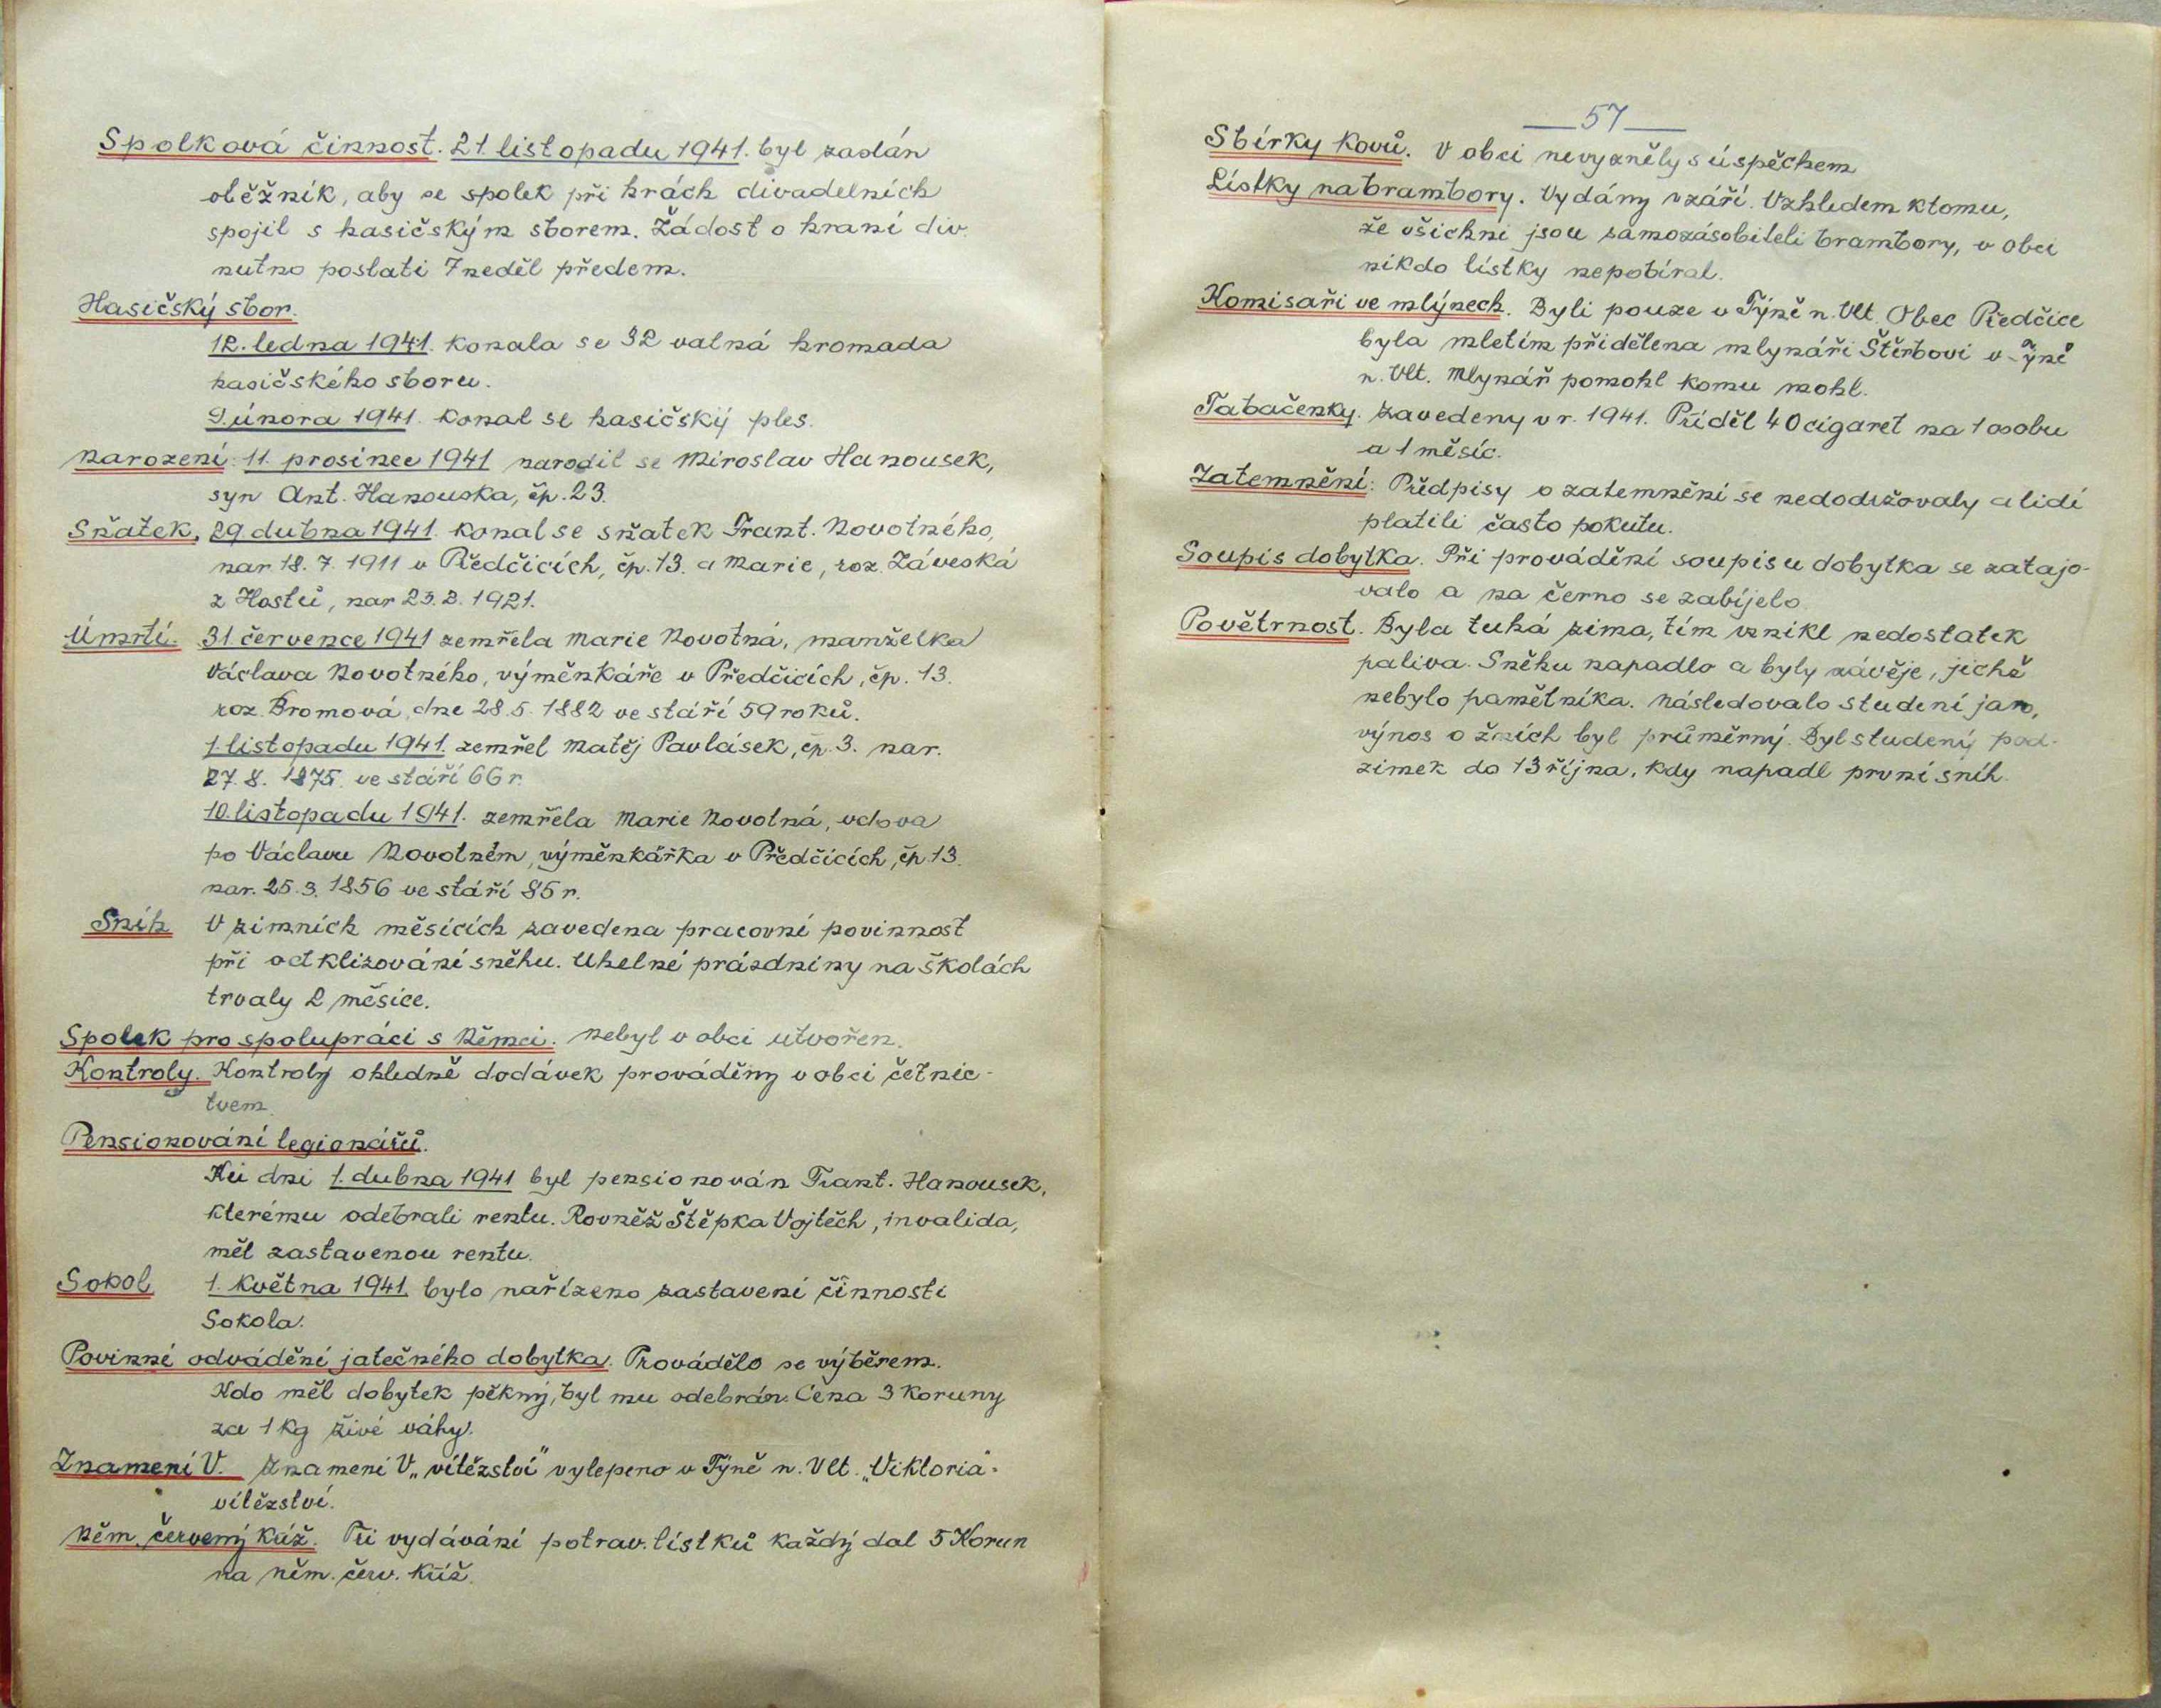 Spolková činnost. 21. listopadu 1941. byl zaslán
oběžník, aby se spolek při hrách divadelních
spojil s hasičským sborem. Žádost o hraní div.
nutno poslati 7 neděl předem.
Hasičský sbor.
12. ledna 1941. konala se 32 valná hromada
hasičského sboru.
9. února 1941. konal se hasičský ples.
Narození: 11. prosince 1941 narodil se Miroslav Hanousek,
syn Ant. Hanouska, čp. 23.
Sňatek, 29. dubna 1941. konal se sňatek Frant. Novotného,
nar. 18. 7. 1911 v Předčicích, čp. 13. a Marie, roz. Záveská
z Hostů, nar 23. 2. 1921.
Úmrtí. 31. července 1941 zemřela Marie Novotná, manželka
Václava Novotného, výměnkáře v Předčicích, čp. 13.
roz. Bromová, dne 28. 5. 1882 ve stáří 59 roků.
1. listopadu 1941. zemřel Matěj Pavlásek, čp. 3. nar.
27. 8. 1875. ve stáří 66 r.
10. listopadu 1941. zemřela Marie Novotná, vdova
po Václavu Novotném, výměnkářka v Předčicích, čp. 13.
nar. 25. 3. 1856 ve stáří 85 r.
Sníh V zimních měsících zavedena pracovní povinnost
při odklizování sněhu. Uhelné prázdniny na školách
trvaly 2 měsíce.
Spolek pro spolupráci s Němci. nebyl v obci utvořen.
Kontroly. Kontroly ohledně dodávek prováděny v obci četnic-
tvem.
Pensionování legionářů.
Ku dni 1. dubna 1941 byl pensionován Frant. Hanousek,
kterému odebrali rentu. Rovněž Štěpka Vojtěch, invalida,
měl zastavenou rentu.
Sokol 1. května 1941, bylo nařízeno zastavení činnosti
Sokola.
Povinné odvádění jatečného dobytka. Provádělo se výběrem.
Kdo měl dobytek pěkný, byl mu odebrán. Cena 3 koruny
za 1 kg živé váhy.
Znamení V. Znamení V „vítězství" vylepeno v Týně n. Vlt. „Viktoria"
vítězství.
Něm. červený kříž. Při vydávání potrav. lístků každý dal 5 Korun
na něm. červ. kříž.
57
Sbírky kovů. V obci nevyzněly s úspěchem
Lístky na brambory. Vydány v září. Vzhledem k tomu,
že všichni jsou samozásobiteli brambory, v obci
nikdo lístky nepobíral.
Komisaři ve mlýnech. Byli pouze v Týně n. Vlt. Obec Předčice
byla mletím přidělena mlynáři Štěrbovi v Týně
n. Vlt. Mlynář pomohl komu mohl.
Tabačenky. Zavedeny v r. 1941. Příděl 40 cigaret na 1 osobu
a 1 měsíc.
Zatemnění: Předpisy o zatemnění se nedodržovaly a lidi
platili často pokutu.
Soupis dobytka. Při provádění soupisu dobytka se zatajo-
valo a na černo se zabíjelo.
Povětrnost. Byla tuhá zima, tím vznikl nedostatek
paliva. Sněhu napadlo a byly závěje, jichž
nebylo pamětníka. Následovalo studení jaro,
výnos o žních byl průměrný. Byl studený pod-
zimek do 13 října, kdy napadl první sníh.